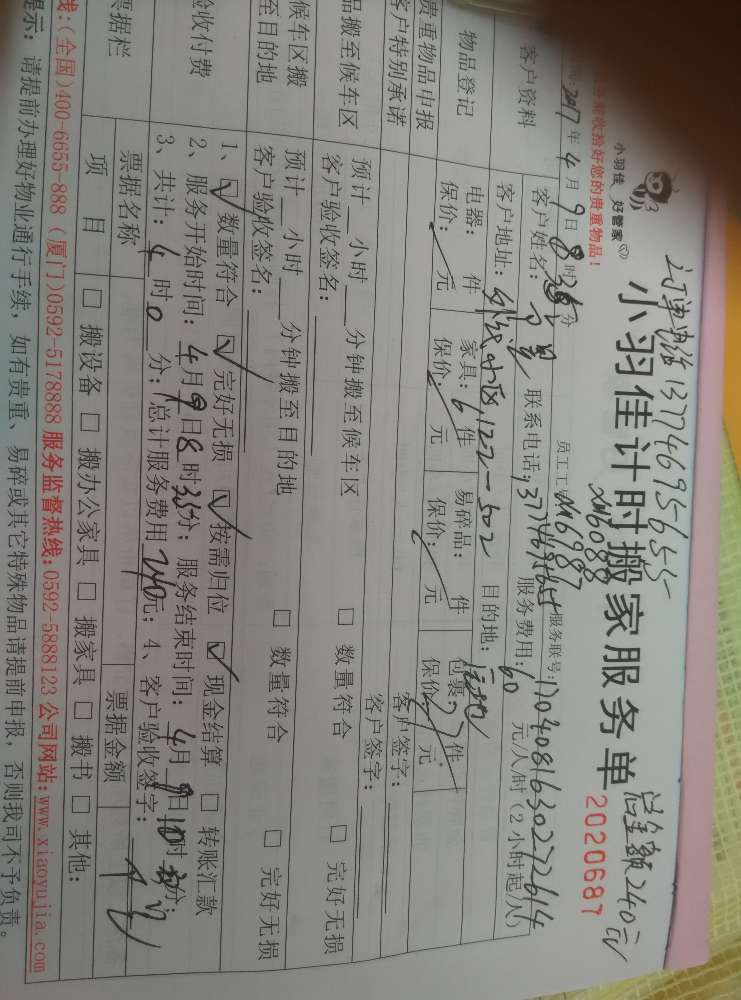 订单电话13774695655
总金额240元
小羽佳 好管家
小羽佳计时搬家服务单
XM6088
2020687
收捡好您的贵重物品!
员工工号 XM6987
服务联号:170408163027 2614
2017年4月9日8时35分
客户资料
客户姓名:
联系电话:13774695655
服务费用:60元/人/时(2小时起)
客户地址:
小区,122-502
目的地:
物品登记
电器: 件
家具:6件
易碎品: 件
包裹: 件
保价: 元
保价: 元
保价: 元
保价: 元
贵重物品申报
客户签字:
客户特别承诺
客户签字:
品搬至候车区
预计__小时__分钟搬至候车区
□ 数量符合
□ 完好无损
客户验收签名:
候车区搬
至目的地
预计__小时__分钟搬至目的地
□ 数量符合
□ 完好无损
客户验收签名:
验收付费
1、☑ 数量符合 ☑ 完好无损 ☑ 按需归位 ☑ 现金结算 □ 转账汇款
2、服务开始时间:4月9日8时35分;服务结束时间:4月9日10时 分;
3、共计:4时0分;总计服务费用240元;4、客户验收签字:
票据栏
票据名称
票据金额
项 目
□ 搬设备 □ 搬办公家具 □ 搬家具 □ 搬书 □ 其他:
线:(全国)400-6655-888 (厦门)0592-5178888 服务监督热线:0592-5888123 公司网站:www.xiaoyujia.com
提示: 请提前办理好物业通行手续,如有贵重、易碎或其它特殊物品请提前申报,否则我司不予负责。